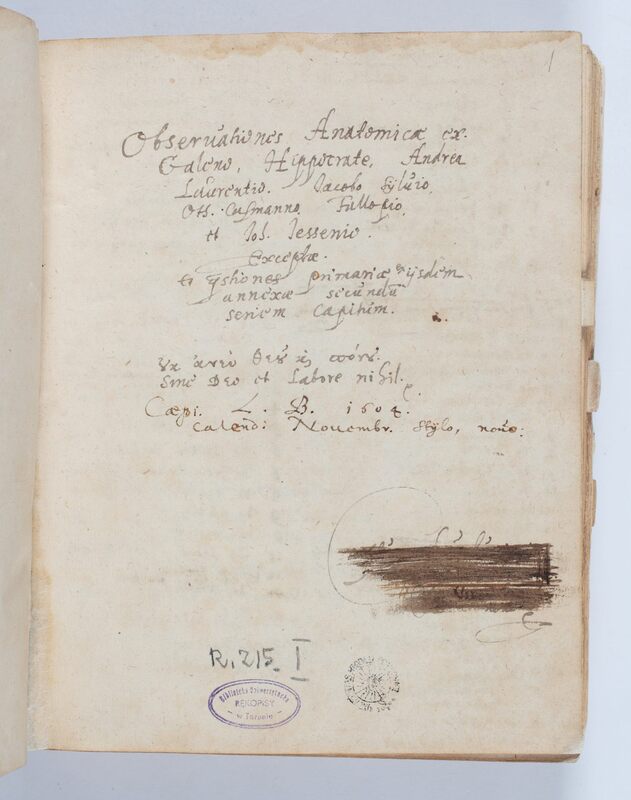 1
Observationes Anatomicæ ex
Galeno, Hippocrate, Andrea
Laurentio. Jacobo Sylvio,
Oth. Casmanno, Fallopio,
et Joh. Jessenio.
Exceptæ.
primariæ ijsdem
annexæ secundū
seriem Capitum.
Sine Deo et Labore nihil.
Cœpi. L. B. 1604.
Calend: Novembr. stylo, novo.
R. 215 I
Biblioteka Uniwersytecka
RĘKOPISY
w Toruniu